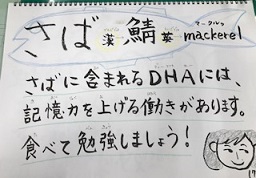 さば 漢 鯖 英 マークルゥ mackerel
さばに含まれるDHAには、
記憶力を上げる働きがあります。
食べて勉強しましょう!